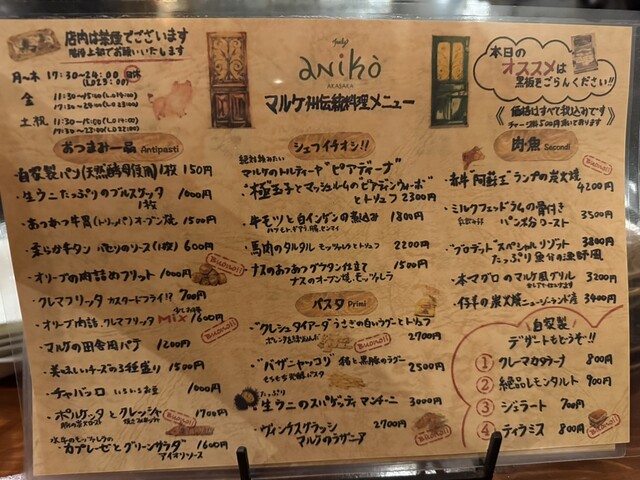 店内は禁煙でございます
月〜木 17:30~24:00
(LO23:00)
金 11:30~15:00 (LO14:00)
17:30~24:00 (LO23:00)
土祝 11:30~15:00 (LO14:00)
17:30~23:00 (LO22:00)
aniko
AKASAKA
マルケ州伝統料理メニュー
本日の
オススメは
黒板をごらんください!!
《価格はすべて税込みです》
おつまみ一品 Antipasti
・自家製パン(天然酵母使用)1枚 150円
・生ウニたっぷりのブルスケッタ 1枚 1000円
・あつあつ牛胃(トリッパ)オーブン焼 1500円
・柔らか牛タン パセリのソース(1枚) 600円
・オリーブの肉詰めフリット 1000円
・クレマフリッタ カスタードフライ!? 700円
・オリーブ肉詰、クレマフリッタ MIX 1600円
・マルケの田舎風パテ 1200円
・美味しいチーズの3種盛り 1500円
・チャバッロ 1000円
・ポルケッタとクレッシャ 1700円
・カプレーゼとグリーンサラダ 1600円
アイオリソース
シェフイチオシ!!
絶対頼みたい
マルケのトルティーヤ "ピアディーナ"
・"極玉子とマッシュルームのピアディンウーボ"
とトリュフ 2300円
・牛モツと白インゲンの煮込み 1800円
・馬肉のタルタル モッツァレラとトリュフ 2200円
・ナスのあつあつグラタン仕立て 1500円
ナスのオーブン焼、モッツァレラ
パスタ Primi
・"クレシュタイアーダ" うさぎの白いラグーとトリュフ
2700円
Buonoii
・"パザニャッコリ" 鴨と黒豚のラグー
もちもち発酵パスタ 2500円
たっぷり
・生ウニのスパゲッティ マンチーニ 3000円
・ヴィンチスグラッシ 2700円
マルケのラザニア
Buonoii
肉魚 Secondi
Buonoii
・赤牛 阿蘇王 ランプの炭火焼
4200円
・ミルクフェッドラムの骨付き
パン粉ロースト 3500円
・"ブロデット" スペシャルリゾット 3800円
たっぷり魚介の漁師風
・本マグロのマルケ風グリル 3200円
・仔羊の炭火焼 ニュージーランド産 3400円
自家製
デザートもどうぞ!!
① クレーマカタラーナ 800円
② 絶品レモンタルト 900円
③ ジェラート 700円
④ ティラミス 800円
Buonoii